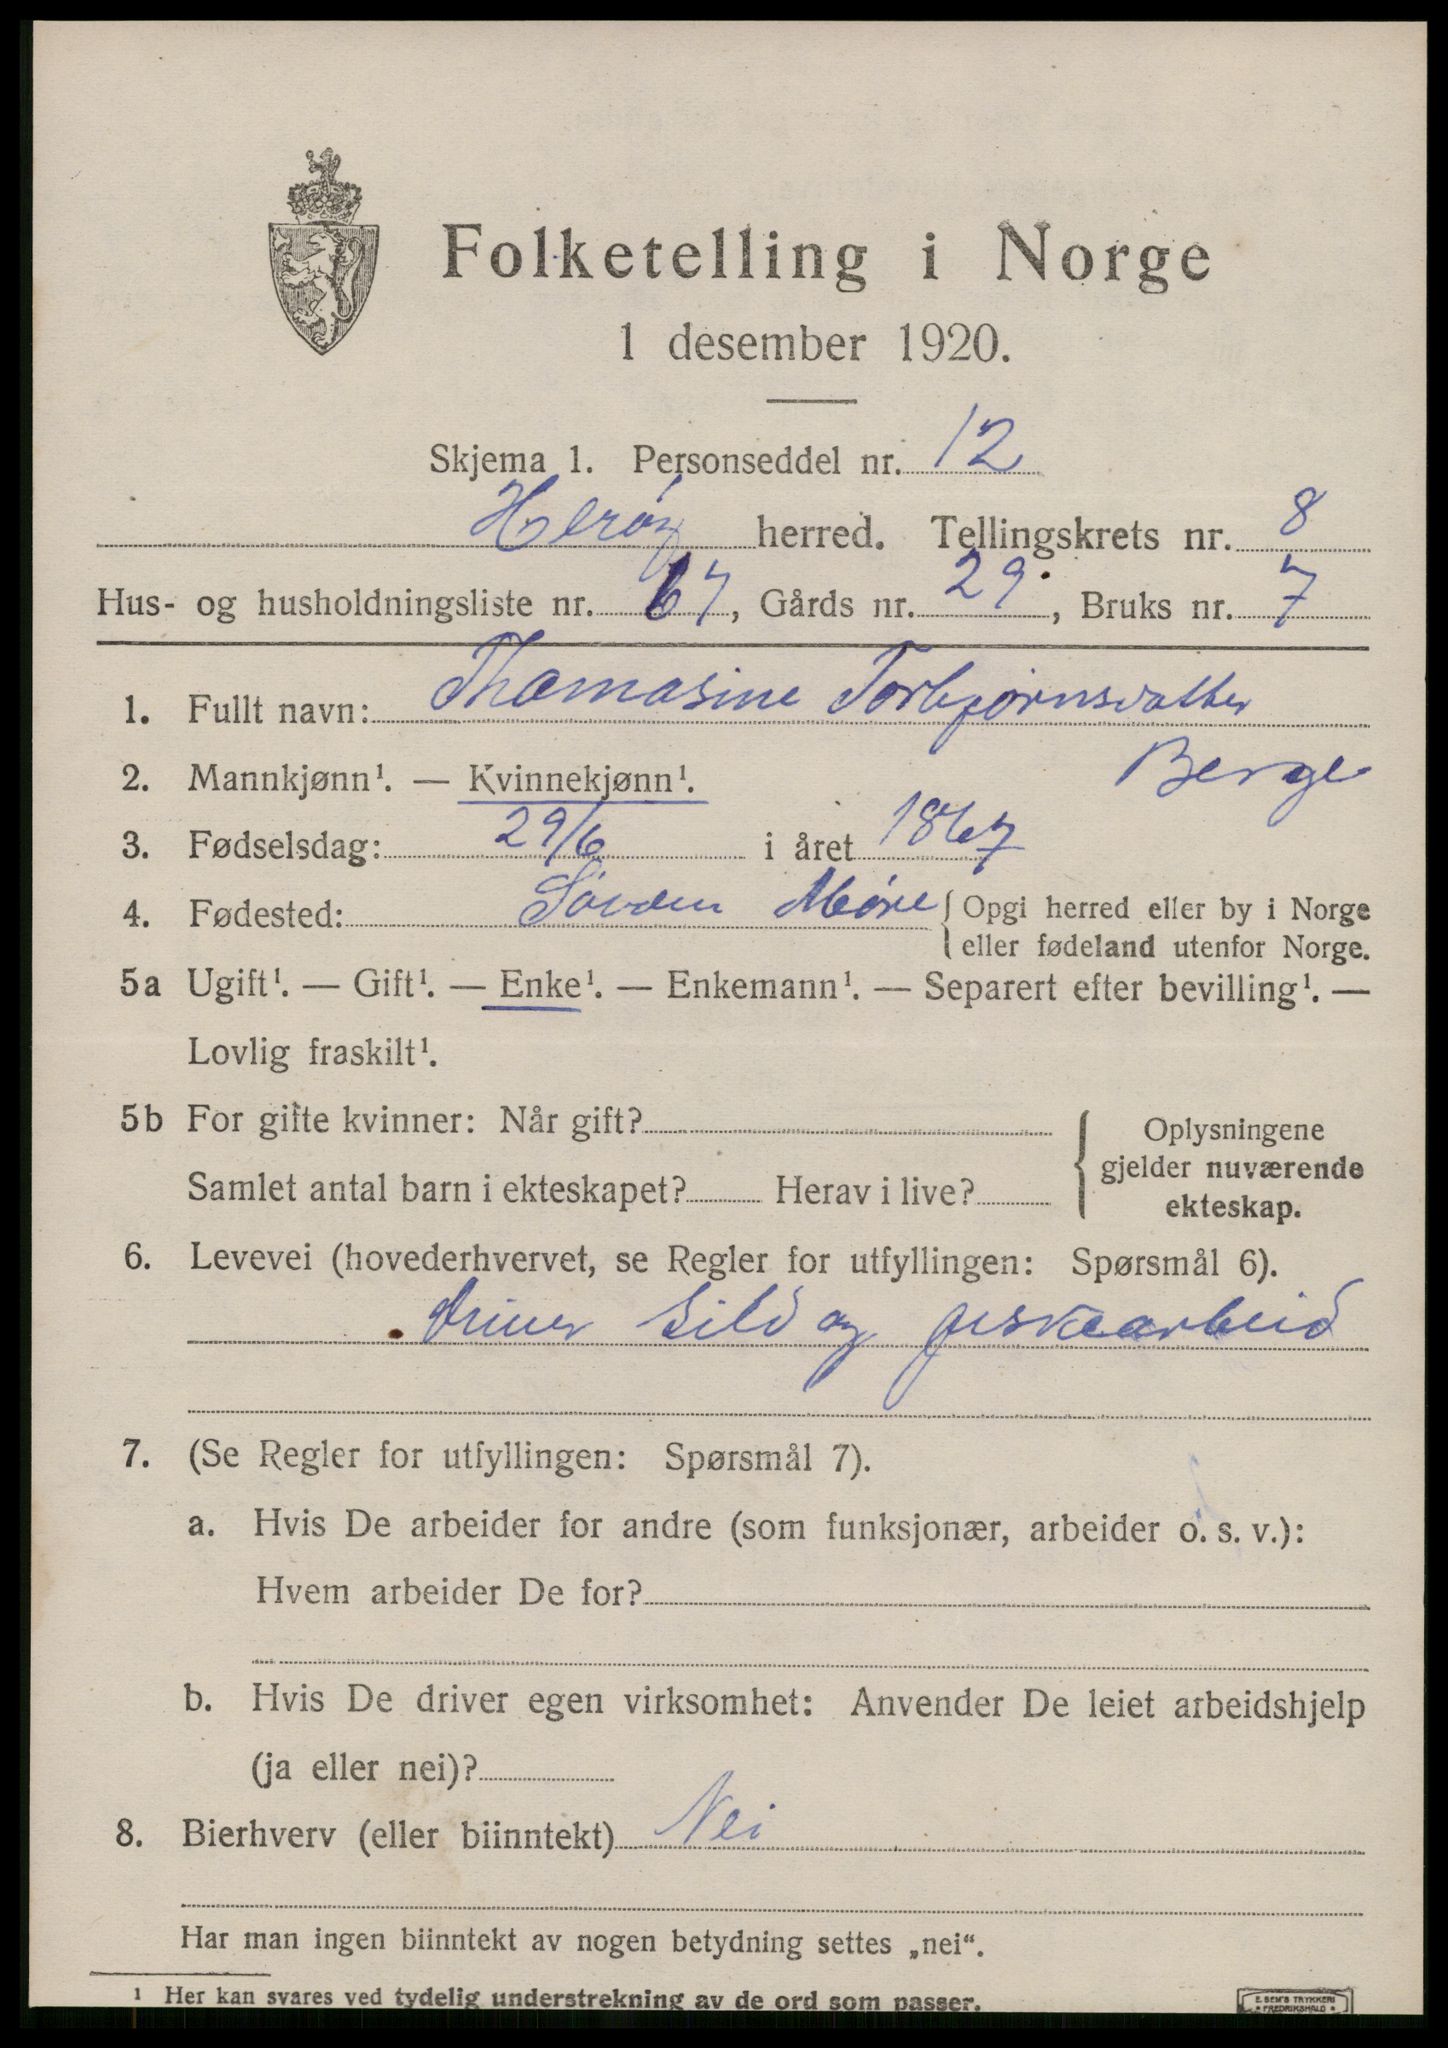 Folketelling i Norge
1 desember 1920.
Skjema 1. Personseddel nr. 12
Herøy herred. Tellingskrets nr. 8
Hus- og husholdningsliste nr. 67, Gårds nr. 29, Bruks nr. 7
1. Fullt navn: Thomasine Torbjørnsdatter
Berge
2. Mannkjønn¹. — Kvinnekjønn¹.
3. Fødselsdag: 29/6 i året 1867
4. Fødested: Søvden Møre { Opgi herred eller by i Norge
eller fødeland utenfor Norge.
5a Ugift¹. — Gift¹. — Enke¹. — Enkemann¹. — Separert efter bevilling¹. —
Lovlig fraskilt¹.
5b For gifte kvinner: Når gift?
Samlet antal barn i ekteskapet? Herav i live?
Oplysningene
gjelder nuværende
ekteskap.
6. Levevei (hovederhvervet, se Regler for utfyllingen: Spørsmål 6).
driver sild og fiskearbeid
7. (Se Regler for utfyllingen: Spørsmål 7).
a. Hvis De arbeider for andre (som funksjonær, arbeider o. s. v.):
Hvem arbeider De for?
b. Hvis De driver egen virksomhet: Anvender De leiet arbeidshjelp
(ja eller nei)?
8. Bierhverv (eller biinntekt) Nei
Har man ingen biinntekt av nogen betydning settes „nei“.
¹ Her kan svares ved tydelig understrekning av de ord som passer.
E. SEM'S TRYKKERI
FREDRIKSHALD